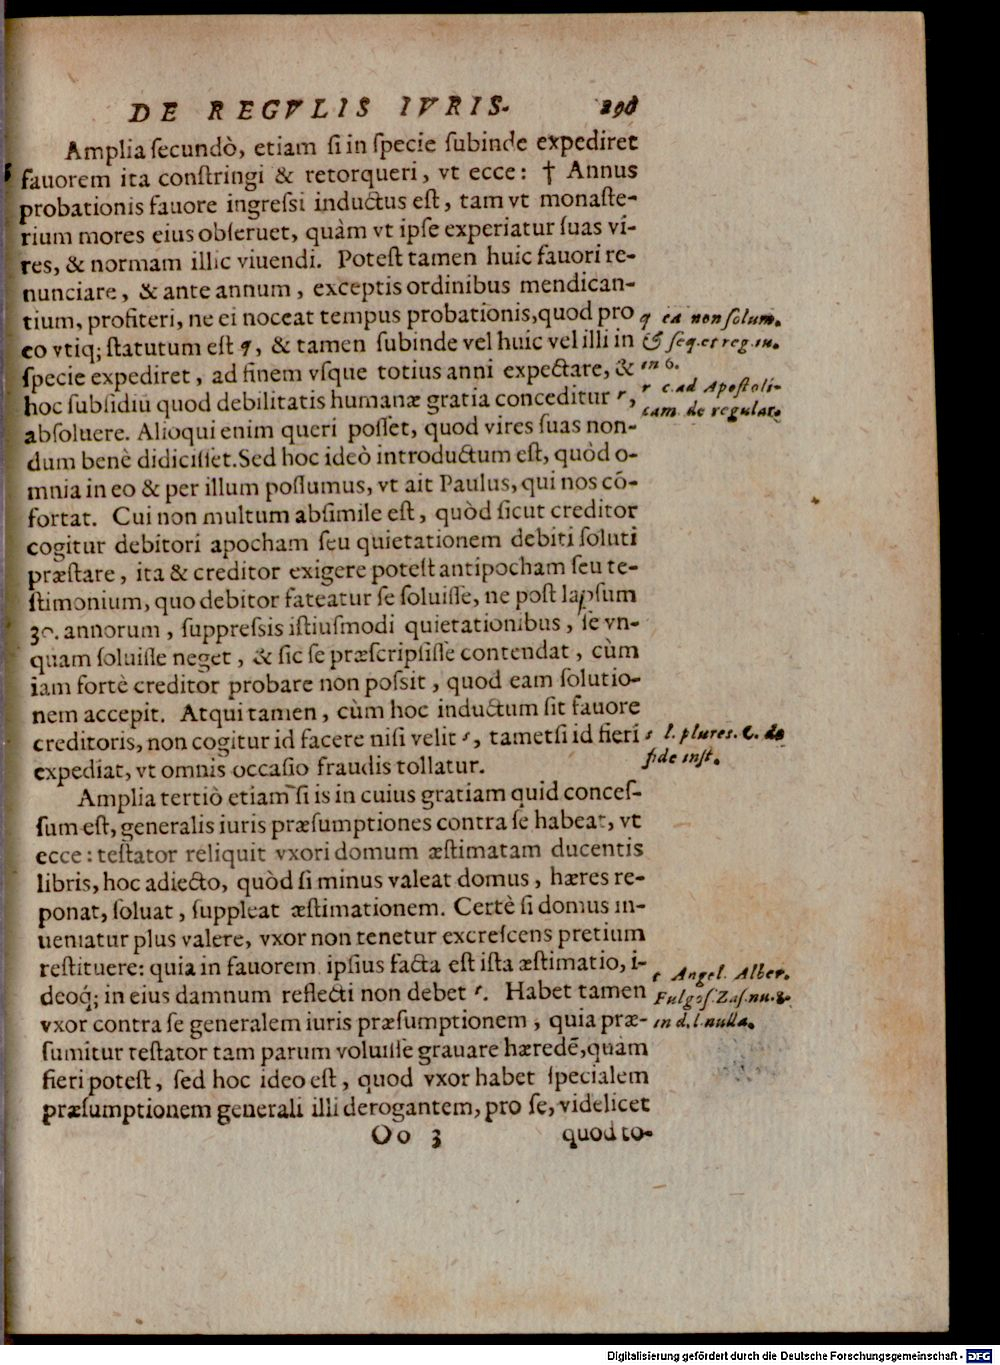 DE REGVLIS IVRIS.
Amplia secundò, etiam ſi in ſpecie ſubinde expediret
fauorem ita conſtringi & retorqueri, vt ecce: † Annus
probationis fauore ingreſsi inductus eſt, tam vt monaſte-
rium mores eius obſeruet, quàm vt ipſe experiatur ſuas vi-
res, & normam illic viuendi. Poteſt tamen huic fauori re-
nunciare, & ante annum, exceptis ordinibus mendican-
tium, profiteri, ne ei noceat tempus probationis, quod pro
eo vtiq; ſtatutum eſt q, & tamen ſubinde vel huic vel illi in
ſpecie expediret, ad finem vſque totius anni expectare, &
hoc ſubſidiū quod debilitatis humanæ gratia conceditur r,
abſoluere. Alioqui enim queri poſſet, quod vires ſuas non-
dum benè didiciſſet. Sed hoc ideò introductum eſt, quòd o-
mnia in eo & per illum poſſumus, vt ait Paulus, qui nos cō-
fortat. Cui non multum abſimile eſt, quòd ſicut creditor
cogitur debitori apocham ſeu quietationem debiti ſoluti
præſtare, ita & creditor exigere poteſt antipocham ſeu te-
ſtimonium, quo debitor fateatur ſe ſoluiſſe, ne poſt lapſum
30. annorum, ſuppreſsis iſtiuſmodi quietationibus, ſe vn-
quam ſoluiſſe neget, & ſic ſe præſcripſiſſe contendat, cùm
iam fortè creditor probare non poſsit, quod eam ſolutio-
nem accepit. Atqui tamen, cùm hoc inductum ſit fauore
creditoris, non cogitur id facere niſi velit s, tametſi id fieri
expediat, vt omnis occaſio fraudis tollatur.
Amplia tertiò etiam ſi is in cuius gratiam quid conceſ-
ſum eſt, generalis iuris præſumptiones contra ſe habeat, vt
ecce: teſtator reliquit vxori domum æſtimatam ducentis
libris, hoc adiecto, quòd ſi minus valeat domus, hæres re-
ponat, ſoluat, ſuppleat æſtimationem. Certè ſi domus in-
ueniatur plus valere, vxor non tenetur excreſcens pretium
reſtituere: quia in fauorem ipſius facta eſt iſta æſtimatio, i-
deoq́; in eius damnum reflecti non debet t. Habet tamen
vxor contra ſe generalem iuris præſumptionem, quia præ-
ſumitur teſtator tam parum voluiſſe grauare hæredē, quàm
fieri poteſt, ſed hoc ideo eſt, quod vxor habet ſpecialem
præſumptionem generali illi derogantem, pro ſe, videlicet
Oo 3
quod to-
q ea non ſolum.
& ſeq. et reg. in.
in 6.
r c. ad Apoſtoli-
cam. de regular.
s l. plures. C. de
fide inſt.
t Angel. Alber.
Fulgoſ. Zaſ. nu. 8.
in d. l. nulla.
Digitalisierung gefördert durch die Deutsche Forschungsgemeinschaft - DFG